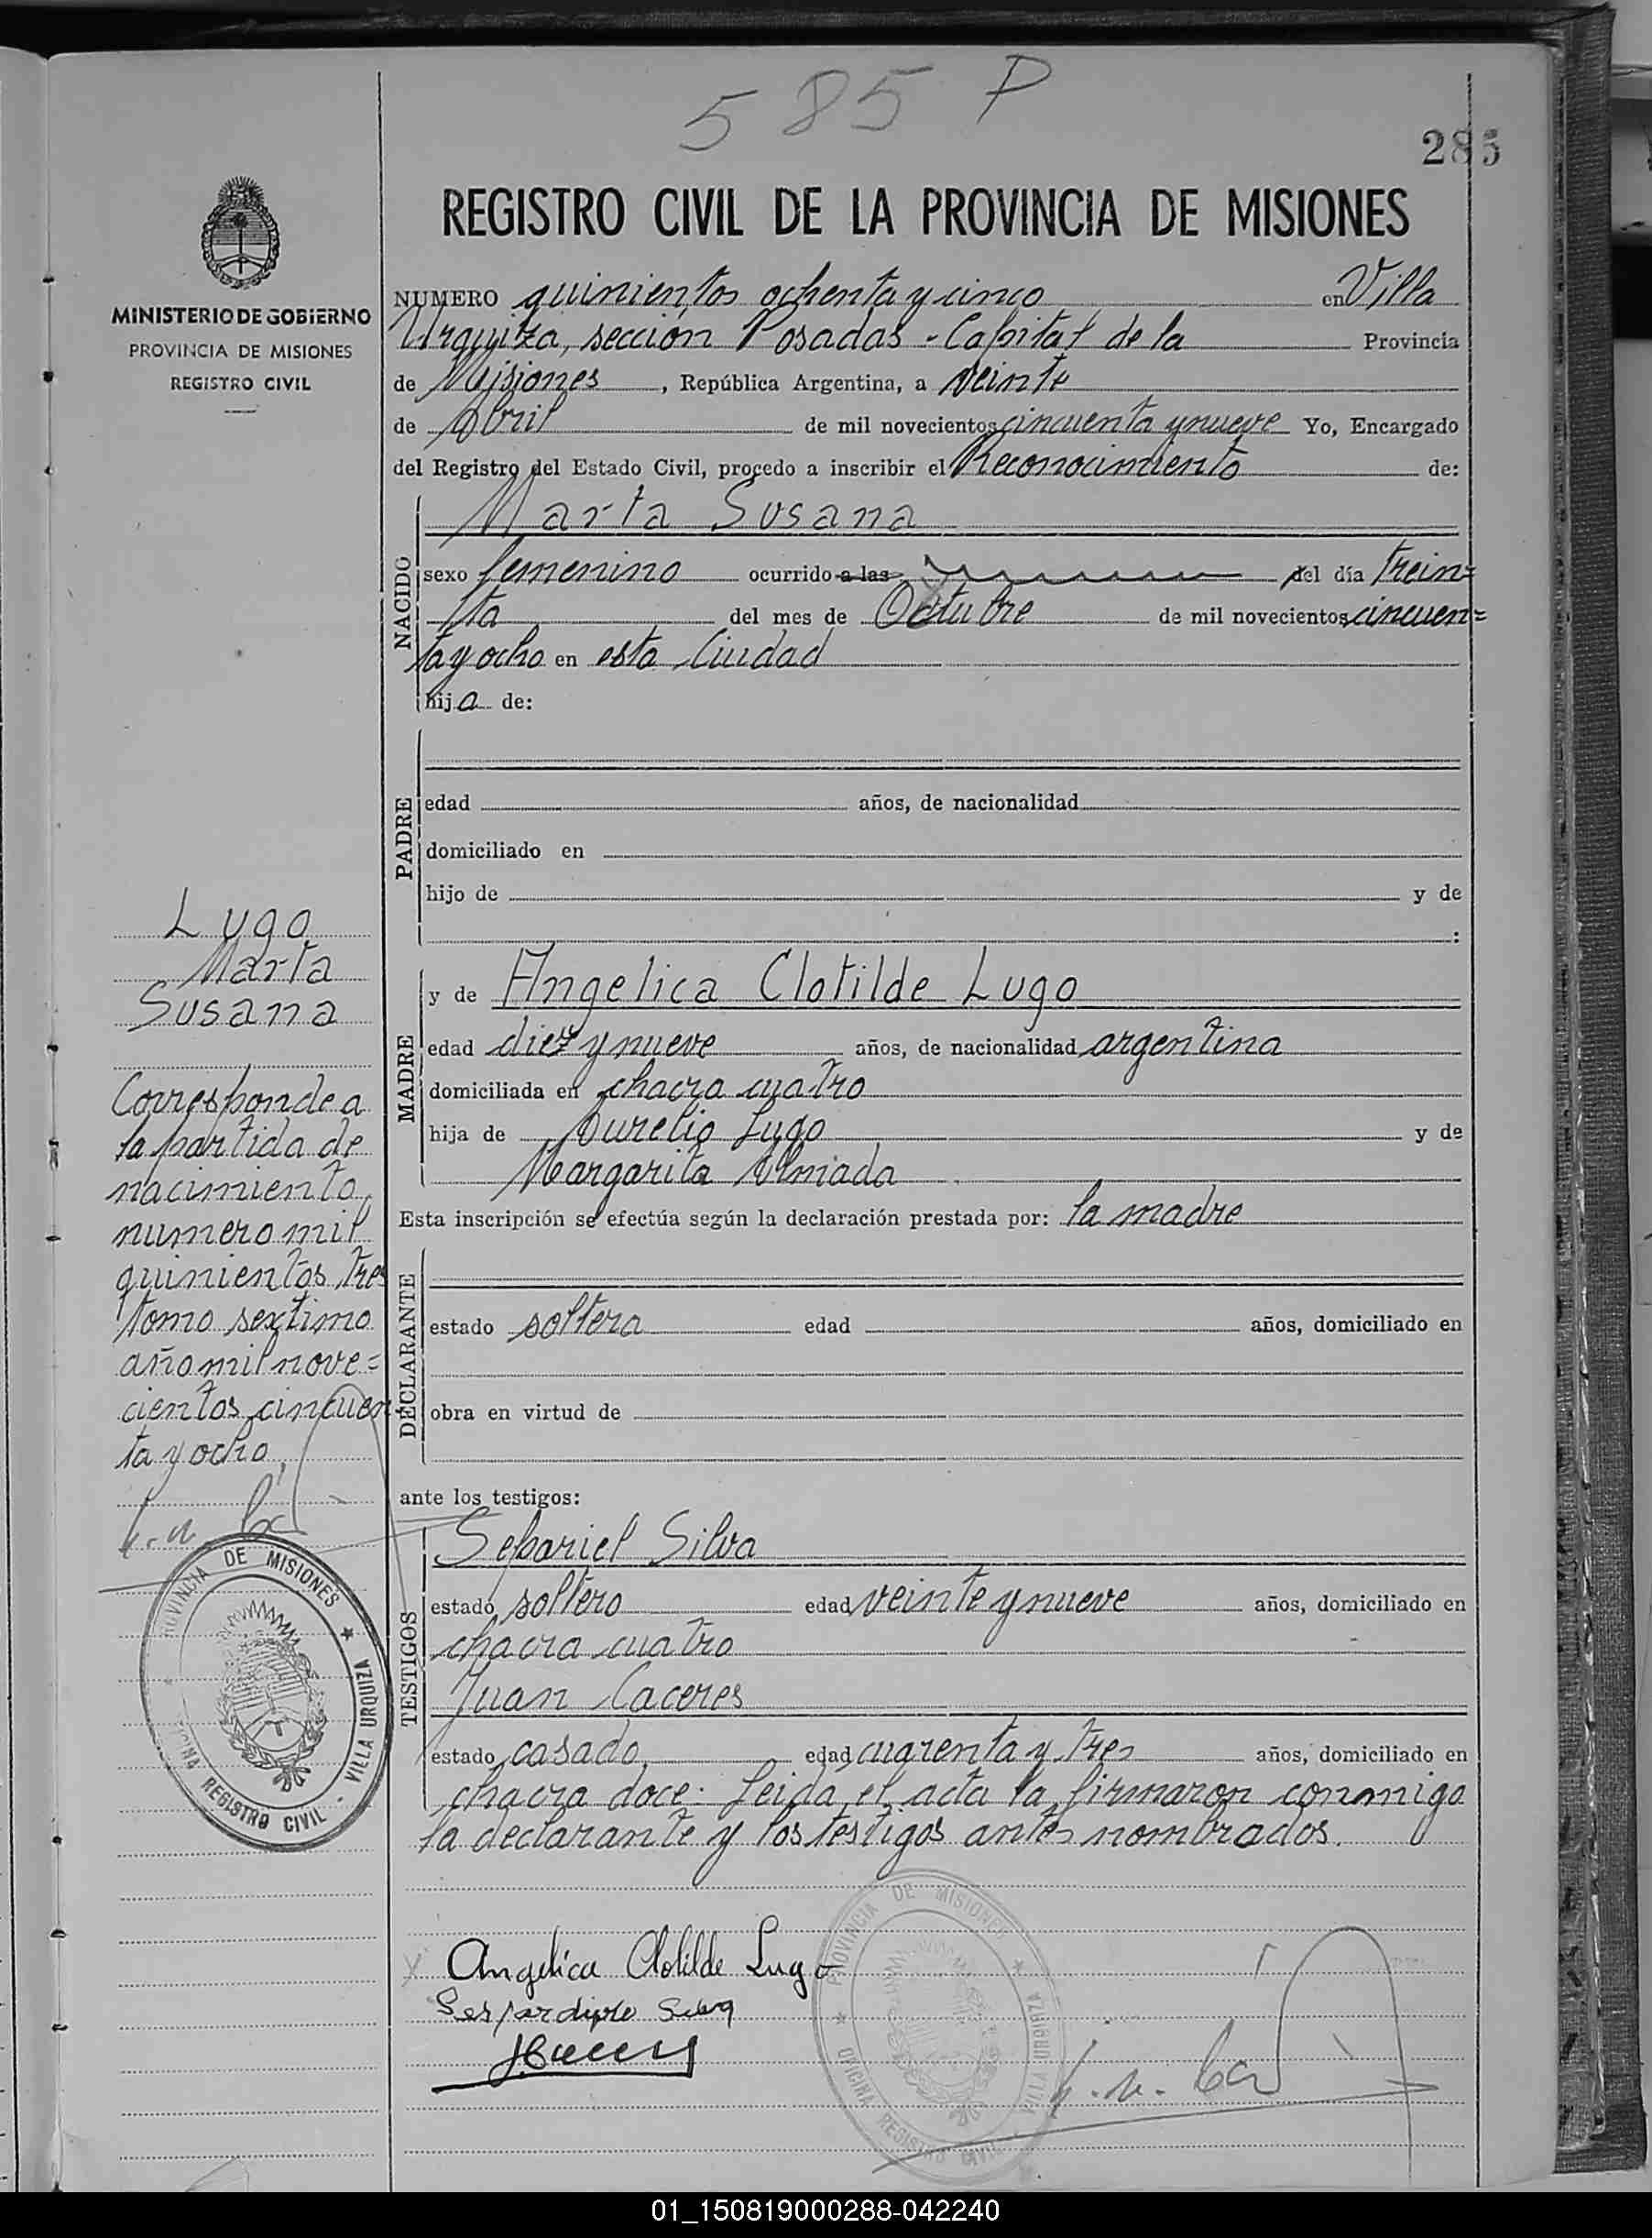 585 P
285
REGISTRO CIVIL DE LA PROVINCIA DE MISIONES
MINISTERIO DE GOBIERNO
PROVINCIA DE MISIONES
REGISTRO CIVIL
NUMERO quinientos ochenta y cinco en Villa
Urquiza, sección Posadas - Capital de la Provincia
de Misiones, República Argentina, a veinte
de Abril de mil novecientos cincuenta y nueve Yo, Encargado
del Registro del Estado Civil, procedo a inscribir el Reconocimiento de:
NACIDO
Marta Susana
sexo femenino ocurrido a las del día trein=
ta del mes de Octubre de mil novecientos cincuen=
ta y ocho en esta Ciudad
hija de:
PADRE
edad años, de nacionalidad
domiciliado en
hijo de y de
:
Lugo
Marta
Susana
Corresponde a
la partida de
nacimiento
numero mil
quinientos tres
tomo sextimo
año mil nove=
cientos cincuen-
ta y ocho
MADRE
y de Angelica Clotilde Lugo
edad diez y nueve años, de nacionalidad argentina
domiciliada en chacra cuatro
hija de Aurelio Lugo y de
Margarita Almada
Esta inscripción se efectúa según la declaración prestada por: la madre
DECLARANTE
estado soltera edad años, domiciliado en
obra en virtud de
ante los testigos:
TESTIGOS
Silva
estado soltero edad veinte y nueve años, domiciliado en
chacra cuatro
Juan Caceres
estado casado edad cuarenta y tres años, domiciliado en
chacra doce. Leida el acta la firmaron conmigo
la declarante y los testigos antes nombrados.
PROVINCIA DE MISIONES
OFICINA REGISTRO CIVIL - VILLA URQUIZA
Angelica Clotilde Lugo
Silva
PROVINCIA DE MISIONES
OFICINA REGISTRO CIVIL VILLA URQUIZA
01_150819000288-042240